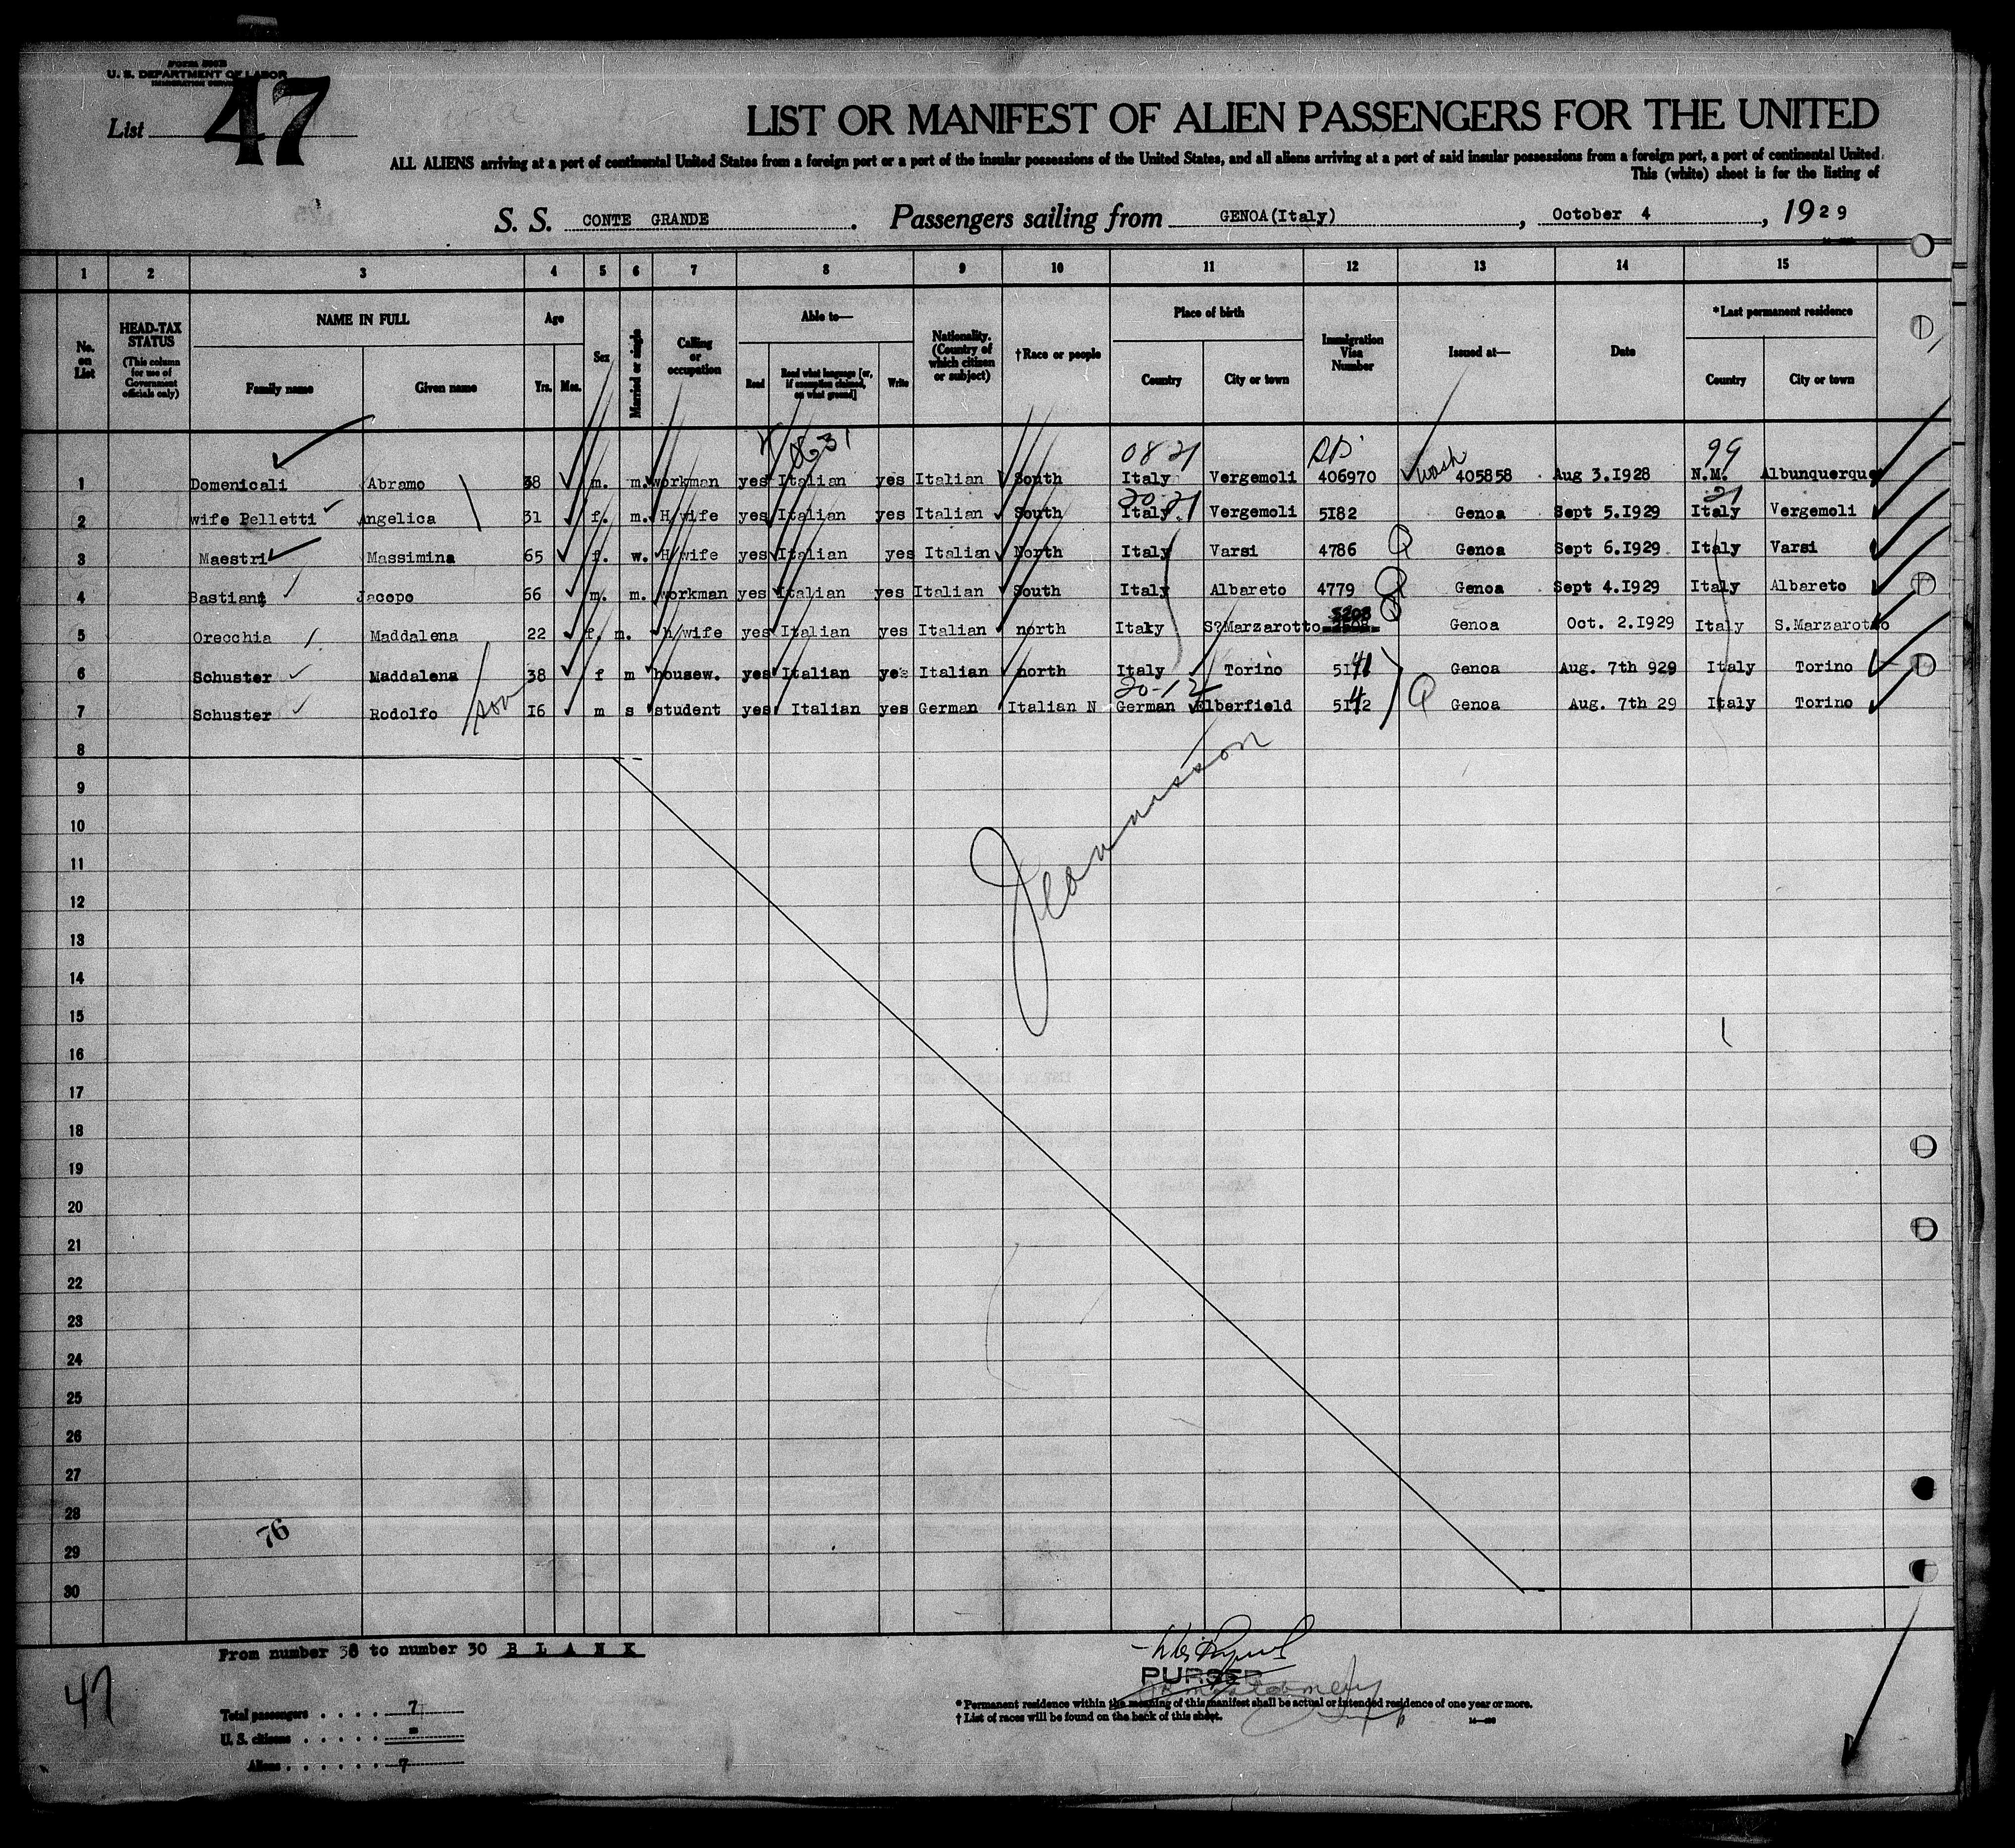 Form 500B
U. S. DEPARTMENT OF LABOR
IMMIGRATION SERVICE
List 47
LIST OR MANIFEST OF ALIEN PASSENGERS FOR THE UNITED
ALL ALIENS arriving at a port of continental United States from a foreign port or a port of the insular possessions of the United States, and all aliens arriving at a port of said insular possessions from a foreign port, a port of continental United
This (white) sheet is for the listing of
S. S. CONTE GRANDE. Passengers sailing from GENOA(Italy), October 4, 1929
1 2 3 4 5 6 7 8 9 10 11 12 13 14 15
No. on List
HEAD-TAX STATUS (This column for use of Government officials only)
NAME IN FULL
Family name Given name
Age
Yrs. Mos.
Sex
Married or single
Calling or occupation
Able to—
Read Read what language [or, if exemption claimed, on what ground] Write
Nationality. (Country of which citizen or subject)
†Race or people
Place of birth
Country City or town
Immigration Visa Number
Issued at—
Date
*Last permanent residence
Country City or town
0631 0821 99
1 Domenicali Abramo 38 m. m. workman yes Italian yes Italian South Italy Vergemoli 406970 wash 405858 Aug 3.I928 N.M. Albunquerque
20-21 21
2 wife Pelletti Angelica 31 f. m. H/wife yes Italian yes Italian South Italy. Vergemoli 5I82 Genoa Sept 5.I929 Italy Vergemoli
3 Maestri Massimina 65 f. w. H/wife yes Italian yes Italian North Italy Varsi 4786 Genoa Sept 6.I929 Italy Varsi
4 Bastiani Jacopo 66 m. m. workman yes Italian yes Italian South Italy Albareto 4779 Genoa Sept 4.I929 Italy Albareto
5208
5 Orecchia Maddalena 22 f. m. h/wife yes Italian yes Italian north Itaky S?Marzarotto Genoa Oct. 2.I929 Italy S.Marzarotto
6 Schuster Maddalena 38 f m housew. yes Italian yes Italian north Italy Torino 5141 Genoa Aug. 7th 929 Italy Torino
son 20-12
7 Schuster Rodolfo I6 m s student yes Italian yes German Italian N German Elberfield 5142 Genoa Aug. 7th 29 Italy Torino
8
9
10
11
12
13
14
15
16
17
18
19
20
21
22
23
24
25
26
27
28
29
30
76
From number 38 to number 30 B L A N K
PURSER
47
Total passengers . . . . 7
U. S. citizens . . . . . -
Aliens . . . . . . 7
* Permanent residence within the meaning of this manifest shall be actual or intended residence of one year or more.
† List of races will be found on the back of this sheet.